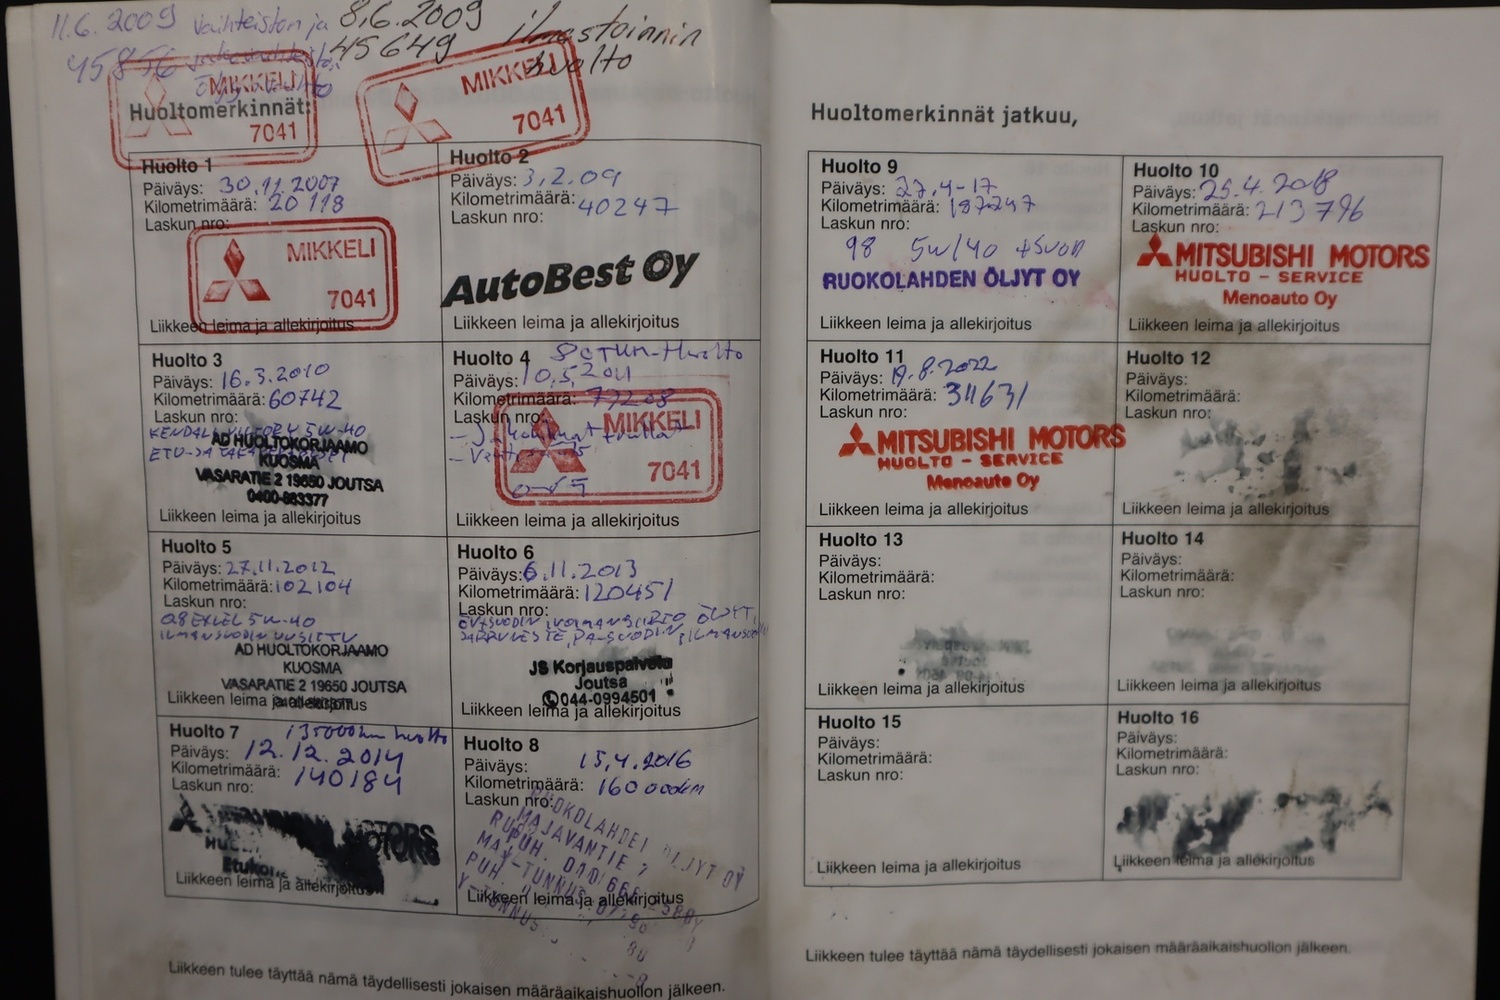 11.6.2009 Vaihteiston ja
45856
8.6.2009 ilmastoinnin
45649 huolto
MIKKELI
7041
MIKKELI
7041
Huoltomerkinnät:
Huolto 1
Päiväys: 30.11.2007
Kilometrimäärä: 20118
Laskun nro:
MIKKELI
7041
Liikkeen leima ja allekirjoitus
Huolto 2
Päiväys: 3.2.09
Kilometrimäärä: 40247
Laskun nro:
AutoBest Oy
Liikkeen leima ja allekirjoitus
Huolto 3
Päiväys: 16.3.2010
Kilometrimäärä: 60742
Laskun nro:
KENDALL 5W-40
AD HUOLTOKORJAAMO
KUOSMA
VASARATIE 2 19650 JOUTSA
0400-883377
Liikkeen leima ja allekirjoitus
Huolto 4
Päiväys: 10.5.2011
Kilometrimäärä: 77208
Laskun nro:
MIKKELI
7041
Liikkeen leima ja allekirjoitus
Huolto 5
Päiväys: 27.11.2012
Kilometrimäärä: 102104
Laskun nro:
5W-40
ILMANSUODIN UUSITTU
AD HUOLTOKORJAAMO
KUOSMA
VASARATIE 2 19650 JOUTSA
Liikkeen leima ja allekirjoitus
Huolto 6
Päiväys: 6.11.2013
Kilometrimäärä: 120451
Laskun nro:
ÖLJYT,
JARRUNESTE,
JS Korjauspalvelu
Joutsa
044-0994501
Liikkeen leima ja allekirjoitus
Huolto 7 135000km huolto
Päiväys: 12.12.2014
Kilometrimäärä: 140184
Laskun nro:
MOTORS
Liikkeen leima ja allekirjoitus
Huolto 8
Päiväys: 15.4.2016
Kilometrimäärä: 160000km
Laskun nro:
RUOKOLAHDEN ÖLJYT OY
MAJAVANTIE 7
Liikkeen leima ja allekirjoitus
Liikkeen tulee täyttää nämä täydellisesti jokaisen määräaikaishuollon jälkeen.
Huoltomerkinnät jatkuu,
Huolto 9
Päiväys: 27.4-17
Kilometrimäärä: 187247
Laskun nro:
98 5W/40 +Suod
RUOKOLAHDEN ÖLJYT OY
Liikkeen leima ja allekirjoitus
Huolto 10
Päiväys: 25.4.2018
Kilometrimäärä: 213796
Laskun nro:
MITSUBISHI MOTORS
HUOLTO - SERVICE
Menoauto Oy
Liikkeen leima ja allekirjoitus
Huolto 11
Päiväys: 19.8.2022
Kilometrimäärä: 311631
Laskun nro:
MITSUBISHI MOTORS
HUOLTO - SERVICE
Menoauto Oy
Liikkeen leima ja allekirjoitus
Huolto 12
Päiväys:
Kilometrimäärä:
Laskun nro:
Liikkeen leima ja allekirjoitus
Huolto 13
Päiväys:
Kilometrimäärä:
Laskun nro:
Liikkeen leima ja allekirjoitus
Huolto 14
Päiväys:
Kilometrimäärä:
Laskun nro:
Liikkeen leima ja allekirjoitus
Huolto 15
Päiväys:
Kilometrimäärä:
Laskun nro:
Liikkeen leima ja allekirjoitus
Huolto 16
Päiväys:
Kilometrimäärä:
Laskun nro:
Liikkeen leima ja allekirjoitus
Liikkeen tulee täyttää nämä täydellisesti jokaisen määräaikaishuollon jälkeen.